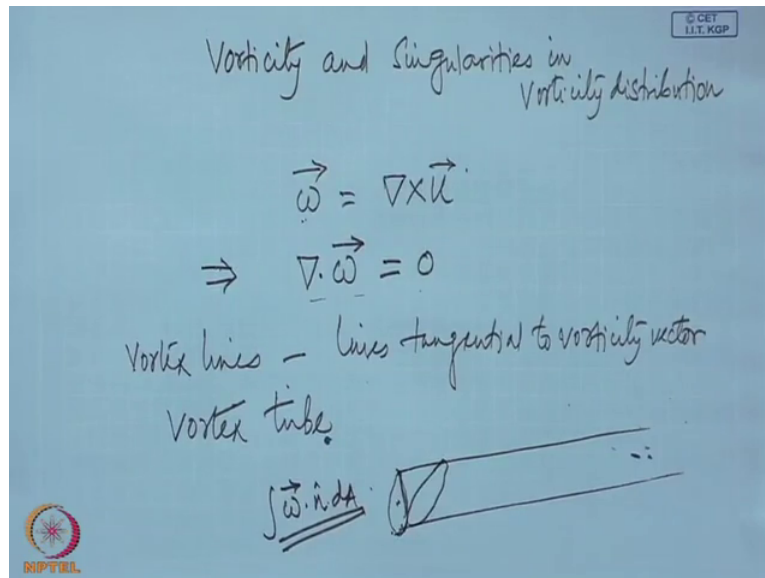 © CET
I.I.T. KGP
Vorticity and Singularities in
Vorticity distribution
→ω = ∇×→u
⇒ ∇·→ω = 0
Vortex lines – lines tangential to vorticity vector
Vortex tube.
∫→ω·n̂ dA
NPTEL